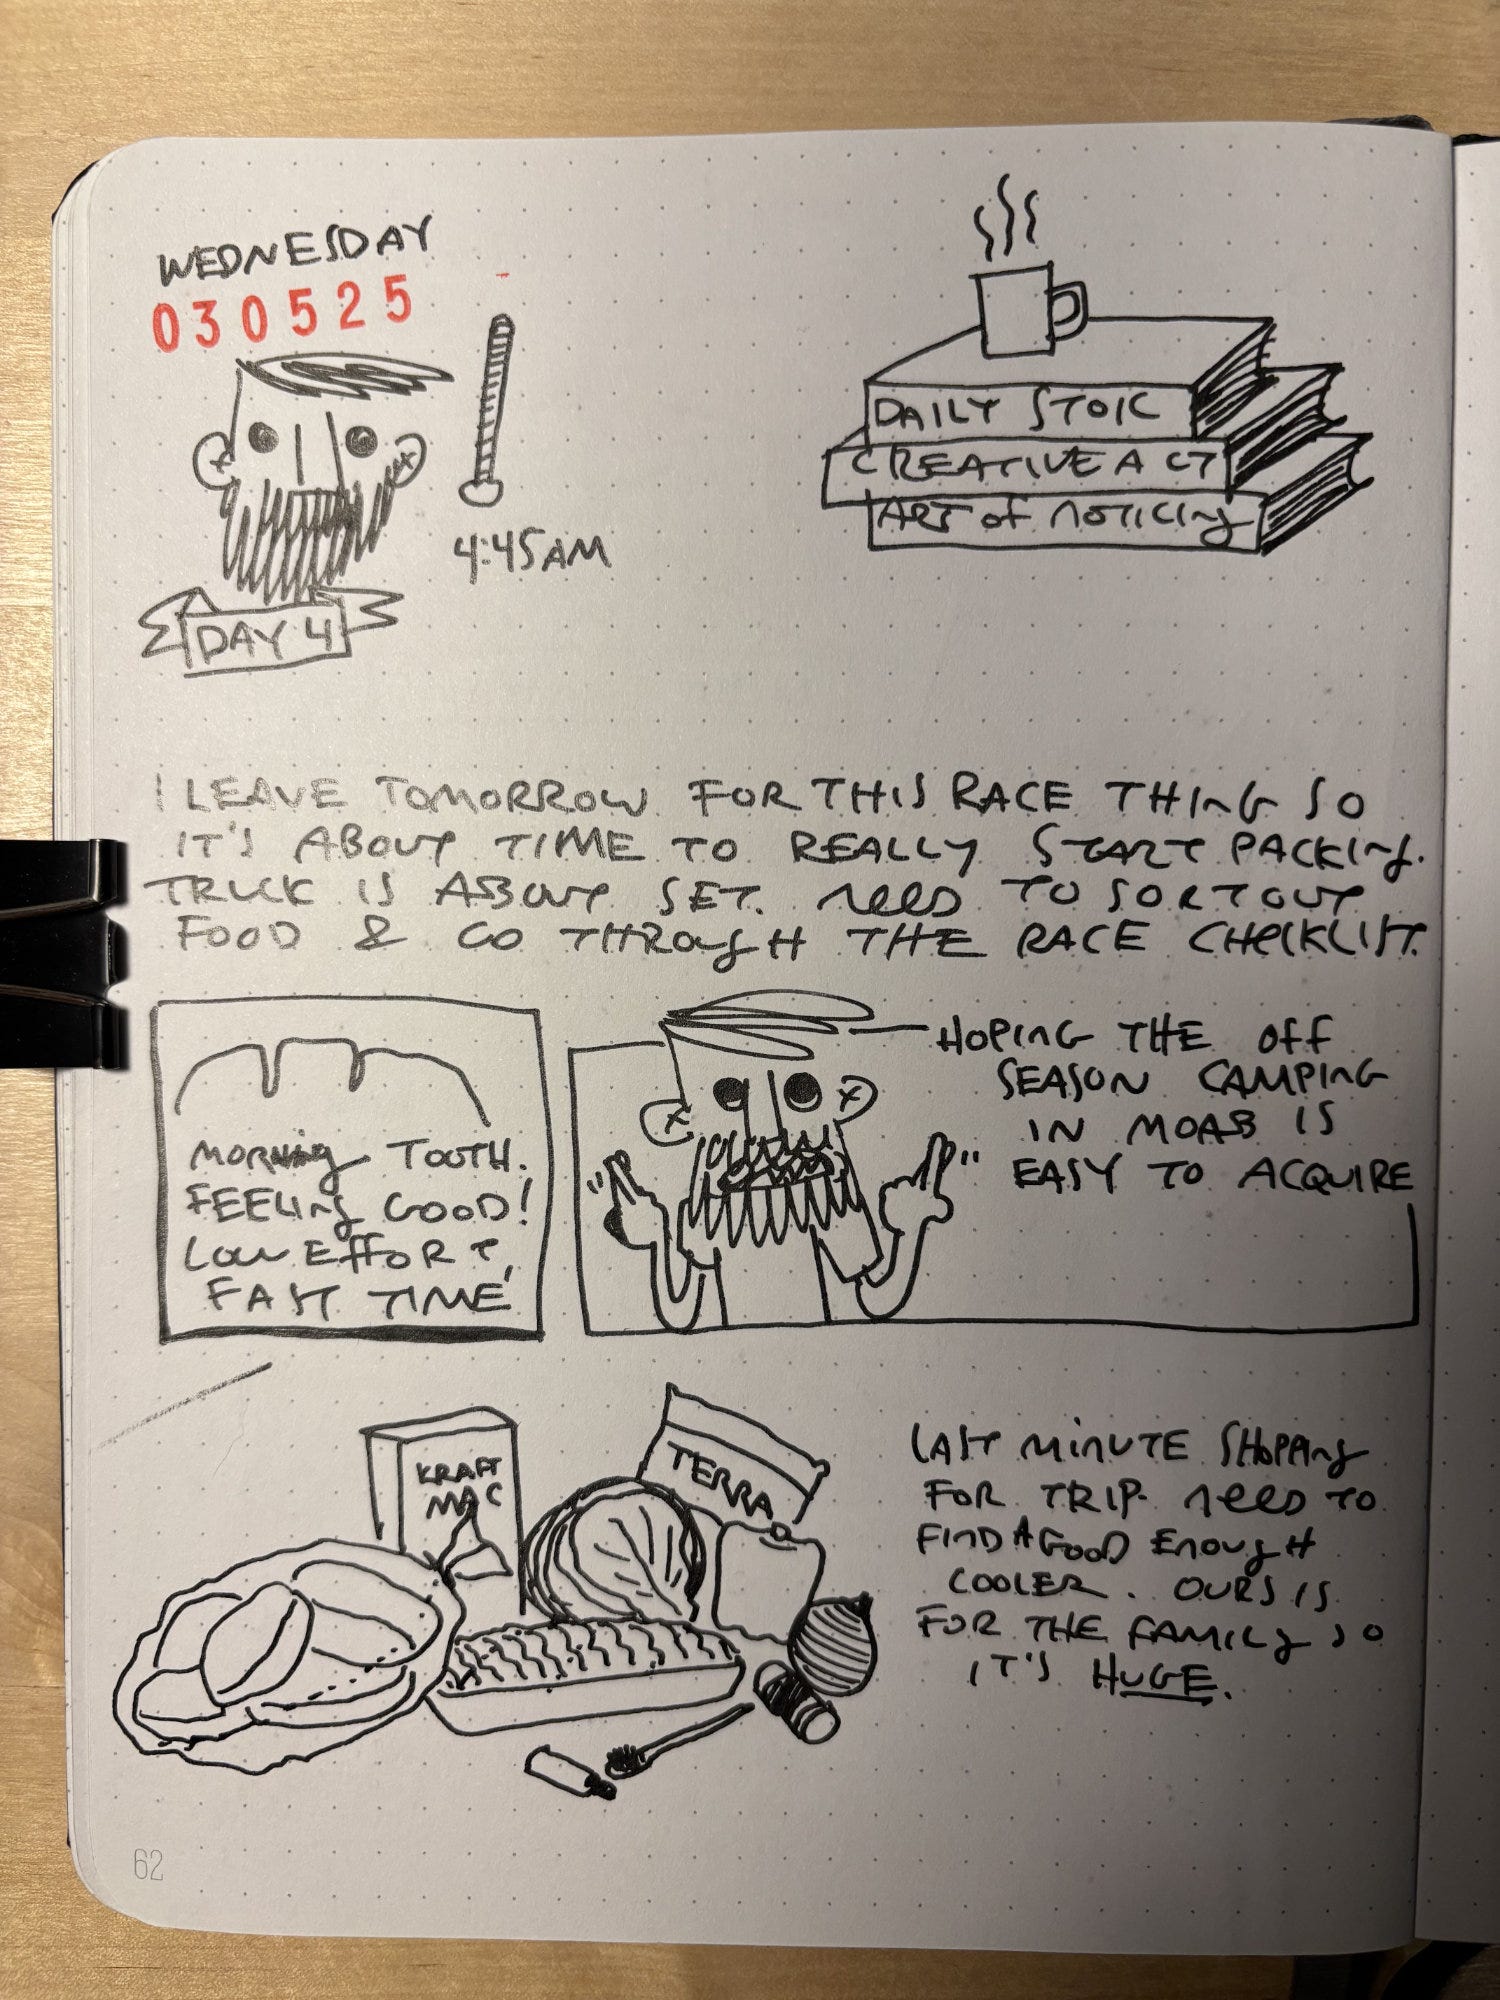 WEDNESDAY
030525
4:45AM
DAY 4
DAILY STOIC
CREATIVE ACT
ART OF NOTICING
I LEAVE TOMORROW FOR THIS RACE THING SO
IT'S ABOUT TIME TO REALLY START PACKING.
TRUCK IS ABOUT SET. NEED TO SORT OUT
FOOD & GO THROUGH THE RACE CHECKLIST.
MORNING TOOTH.
FEELING GOOD!
LOW EFFORT,
FAST TIME
HOPING THE OFF
SEASON CAMPING
IN MOAB IS
EASY TO ACQUIRE
KRAFT
MAC
TERRA
LAST MINUTE SHOPPING
FOR TRIP. NEED TO
FIND A GOOD ENOUGH
COOLER. OURS IS
FOR THE FAMILY SO
IT'S HUGE.
62